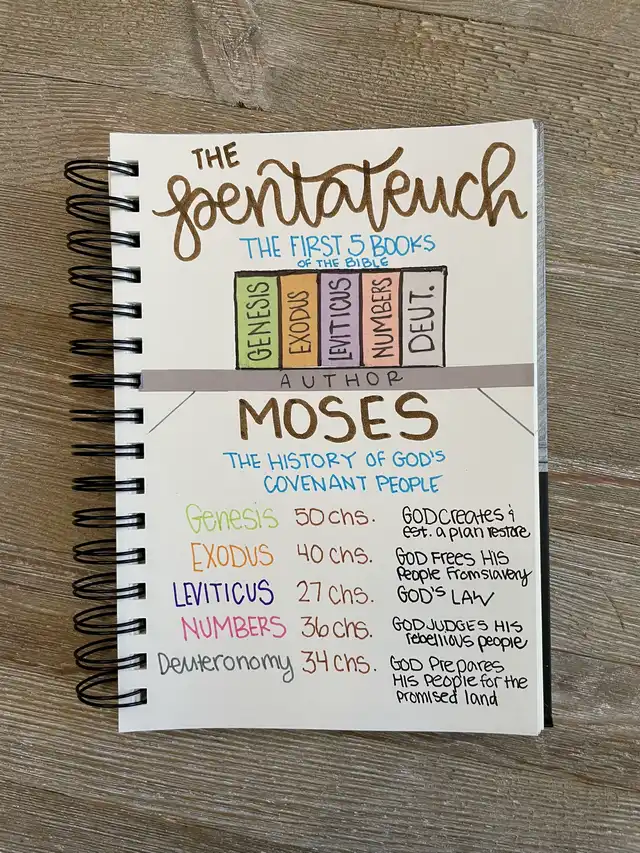 THE
pentateuch
THE FIRST 5 BOOKS
OF THE BIBLE
GENESIS
EXODUS
LEVITICUS
NUMBERS
DEUT.
AUTHOR
MOSES
THE HISTORY OF GOD'S
COVENANT PEOPLE
Genesis 50 chs. GOD Creates &
est. a plan restore
EXODUS 40 chs. GOD FREES HIS
People From slavery
LEVITICUS 27 chs. GOD'S LAW
NUMBERS 36 chs. GOD JUDGES HIS
rebellious people
Deuteronomy 34 chs. GOD Prepares
HIS People for the
promised land